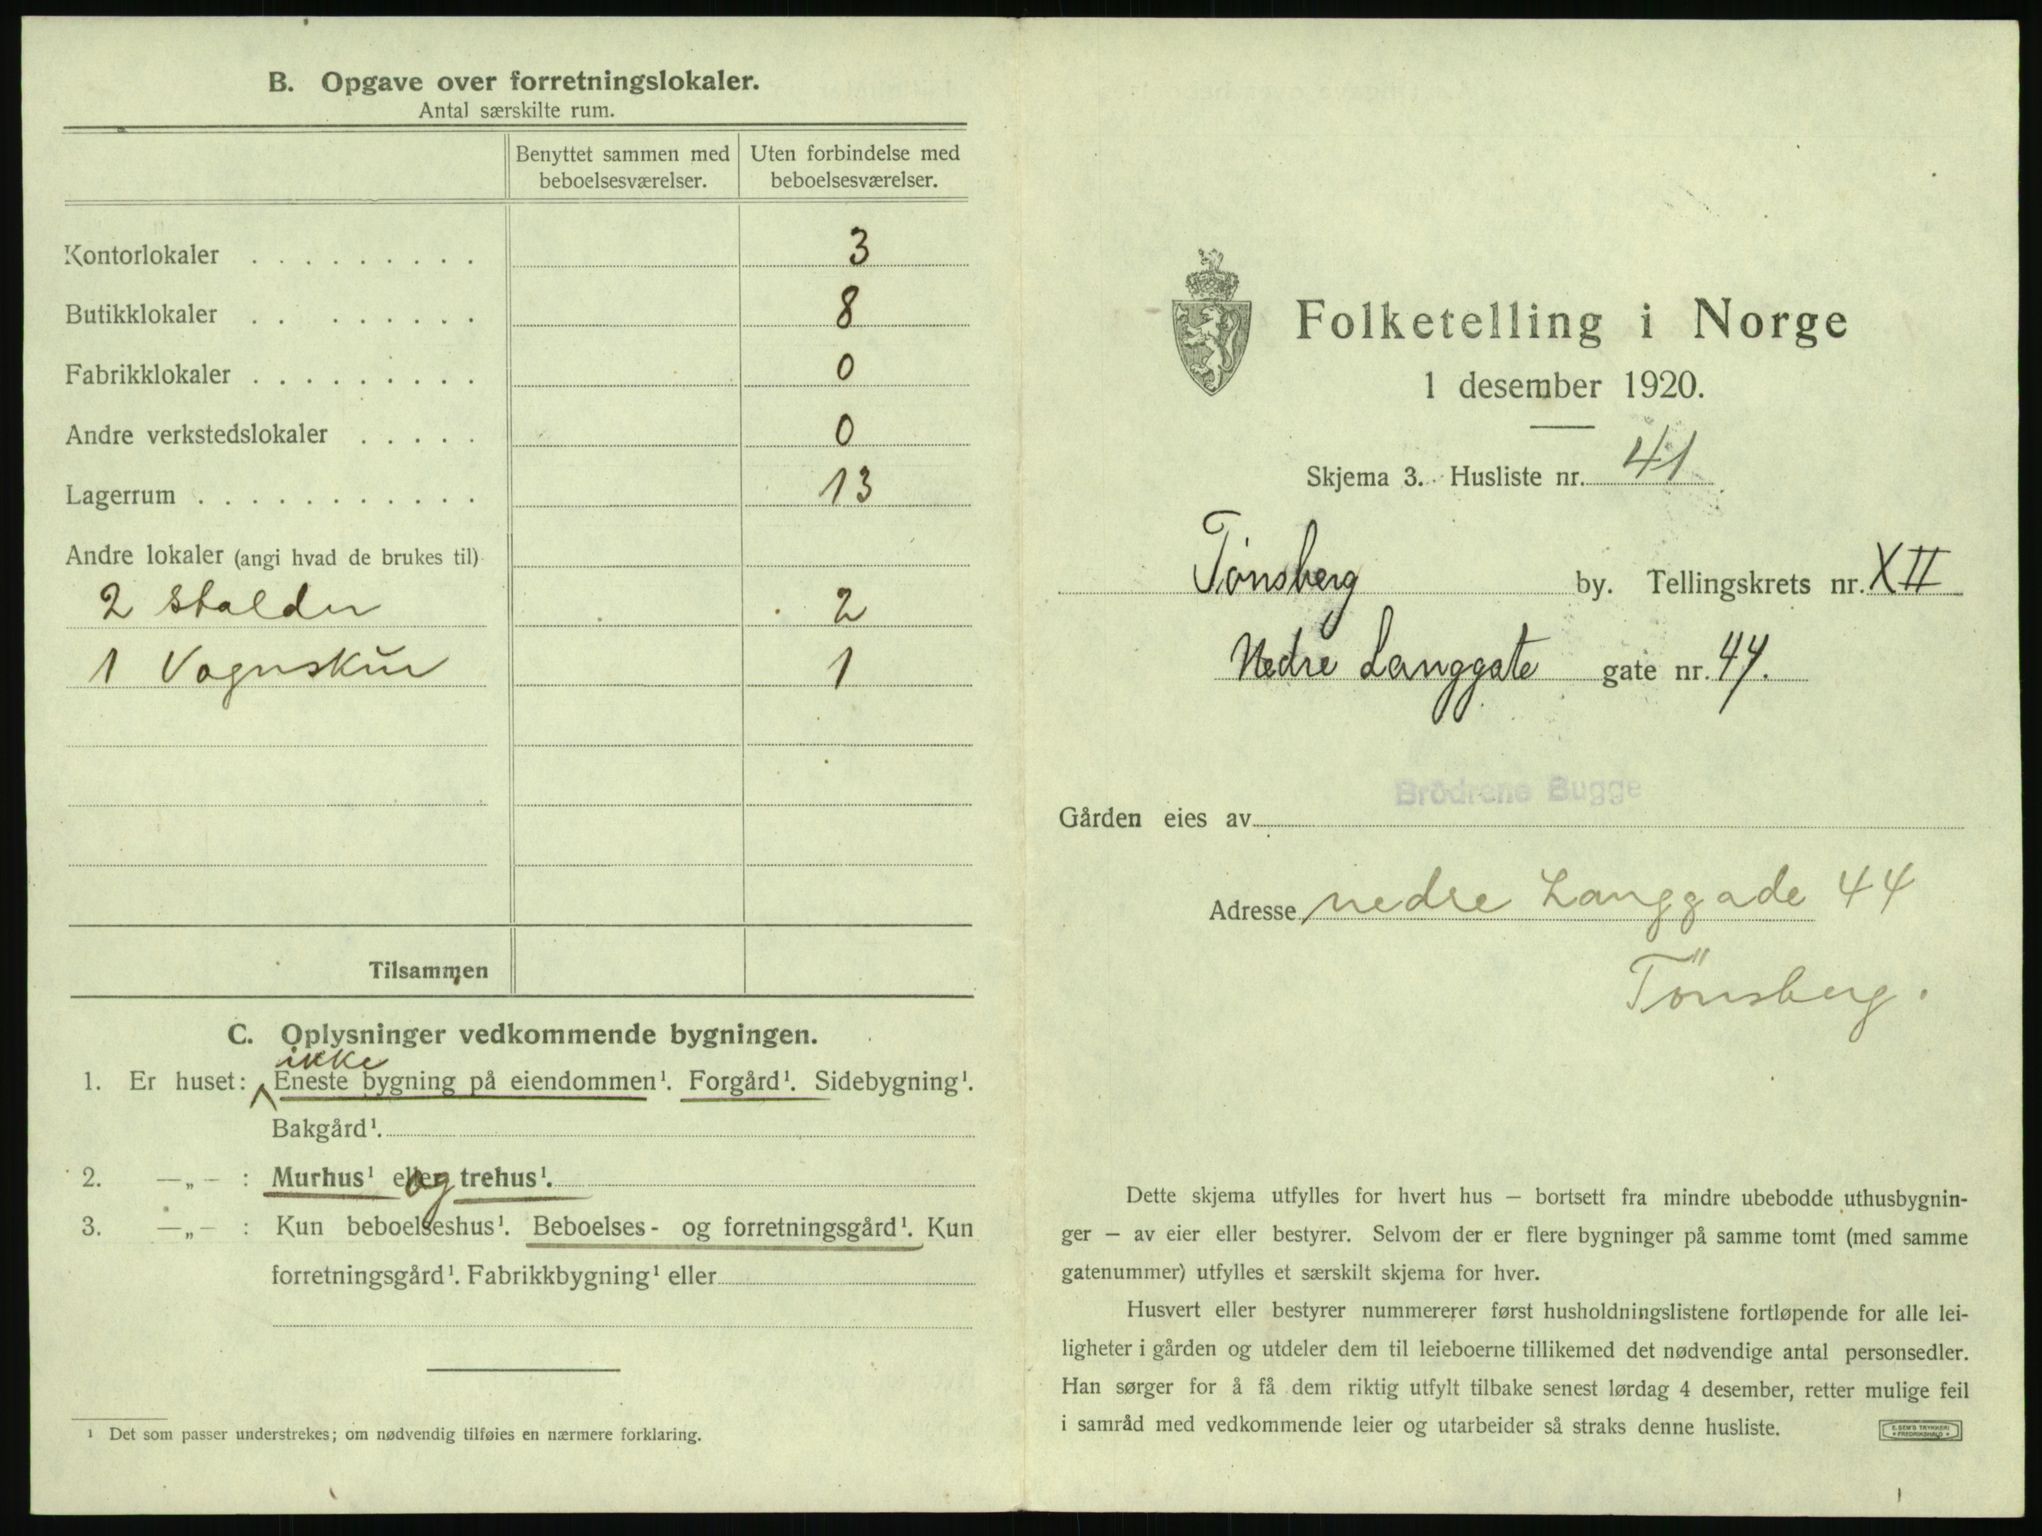 B. Opgave over forretningslokaler.
Antal særskilte rum.
Benyttet sammen med beboelsesværelser.
Uten forbindelse med beboelsesværelser.
Kontorlokaler . . . . . . . . . 3
Butikklokaler . . . . . . . . 8
Fabrikklokaler . . . . . . . . . 0
Andre verkstedslokaler . . . . . 0
Lagerrum . . . . . . . . . . . 13
Andre lokaler (angi hvad de brukes til)
2 Stalder 2
1 Vognskur 1
Tilsammen
C. Oplysninger vedkommende bygningen.
ikke
1. Er huset: Eneste bygning på eiendommen¹. Forgård¹. Sidebygning¹.
Bakgård¹.
2. —„— : Murhus¹ eller og trehus¹.
3. —„— : Kun beboelseshus¹. Beboelses- og forretningsgård¹. Kun
forretningsgård¹. Fabrikkbygning¹ eller
¹ Det som passer understrekes; om nødvendig tilføies en nærmere forklaring.
Folketelling i Norge
1 desember 1920.
Skjema 3. Husliste nr. 41
Tønsberg by. Tellingskrets nr. XII
Nedre Langgate gate nr. 44.
Brödrene Bugge
Gården eies av
Adresse nedre Langgade 44
Tönsberg.
Dette skjema utfylles for hvert hus — bortsett fra mindre ubebodde uthusbygnin-
ger — av eier eller bestyrer. Selvom der er flere bygninger på samme tomt (med samme
gatenummer) utfylles et særskilt skjema for hver.
Husvert eller bestyrer nummererer først husholdningslistene fortløpende for alle lei-
ligheter i gården og utdeler dem til leieboerne tillikemed det nødvendige antal personsedler.
Han sørger for å få dem riktig utfylt tilbake senest lørdag 4 desember, retter mulige feil
i samråd med vedkommende leier og utarbeider så straks denne husliste.
E. SEM'S TRYKKERI
FREDRIKSHALD